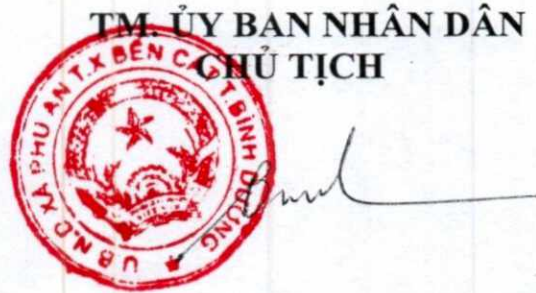 TM. ỦY BAN NHÂN DÂN
CHỦ TỊCH
U.B.N.D XÃ PHÚ AN T.X BẾN CÁT T.BÌNH DƯƠNG